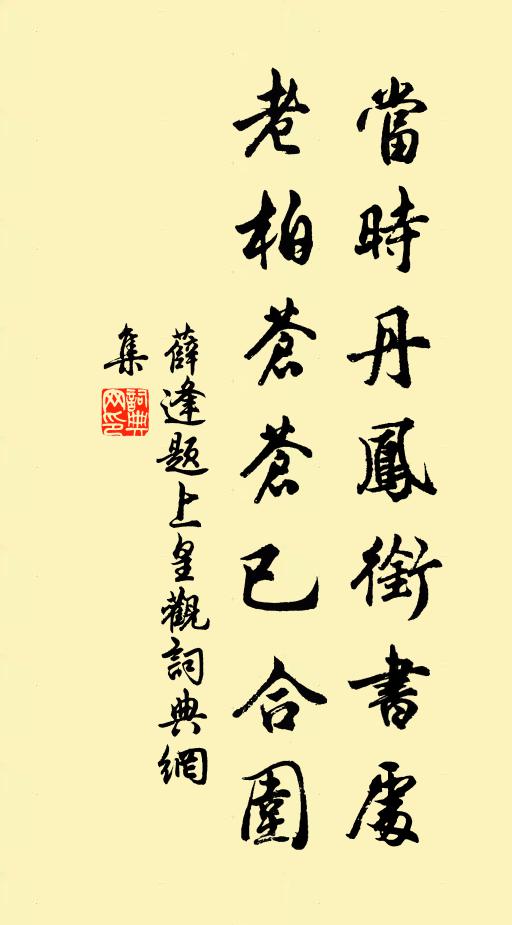 當時丹鳳銜書處
老柏蒼蒼已合圍
薛逢題上皇觀詞典網
集
詞典
网印